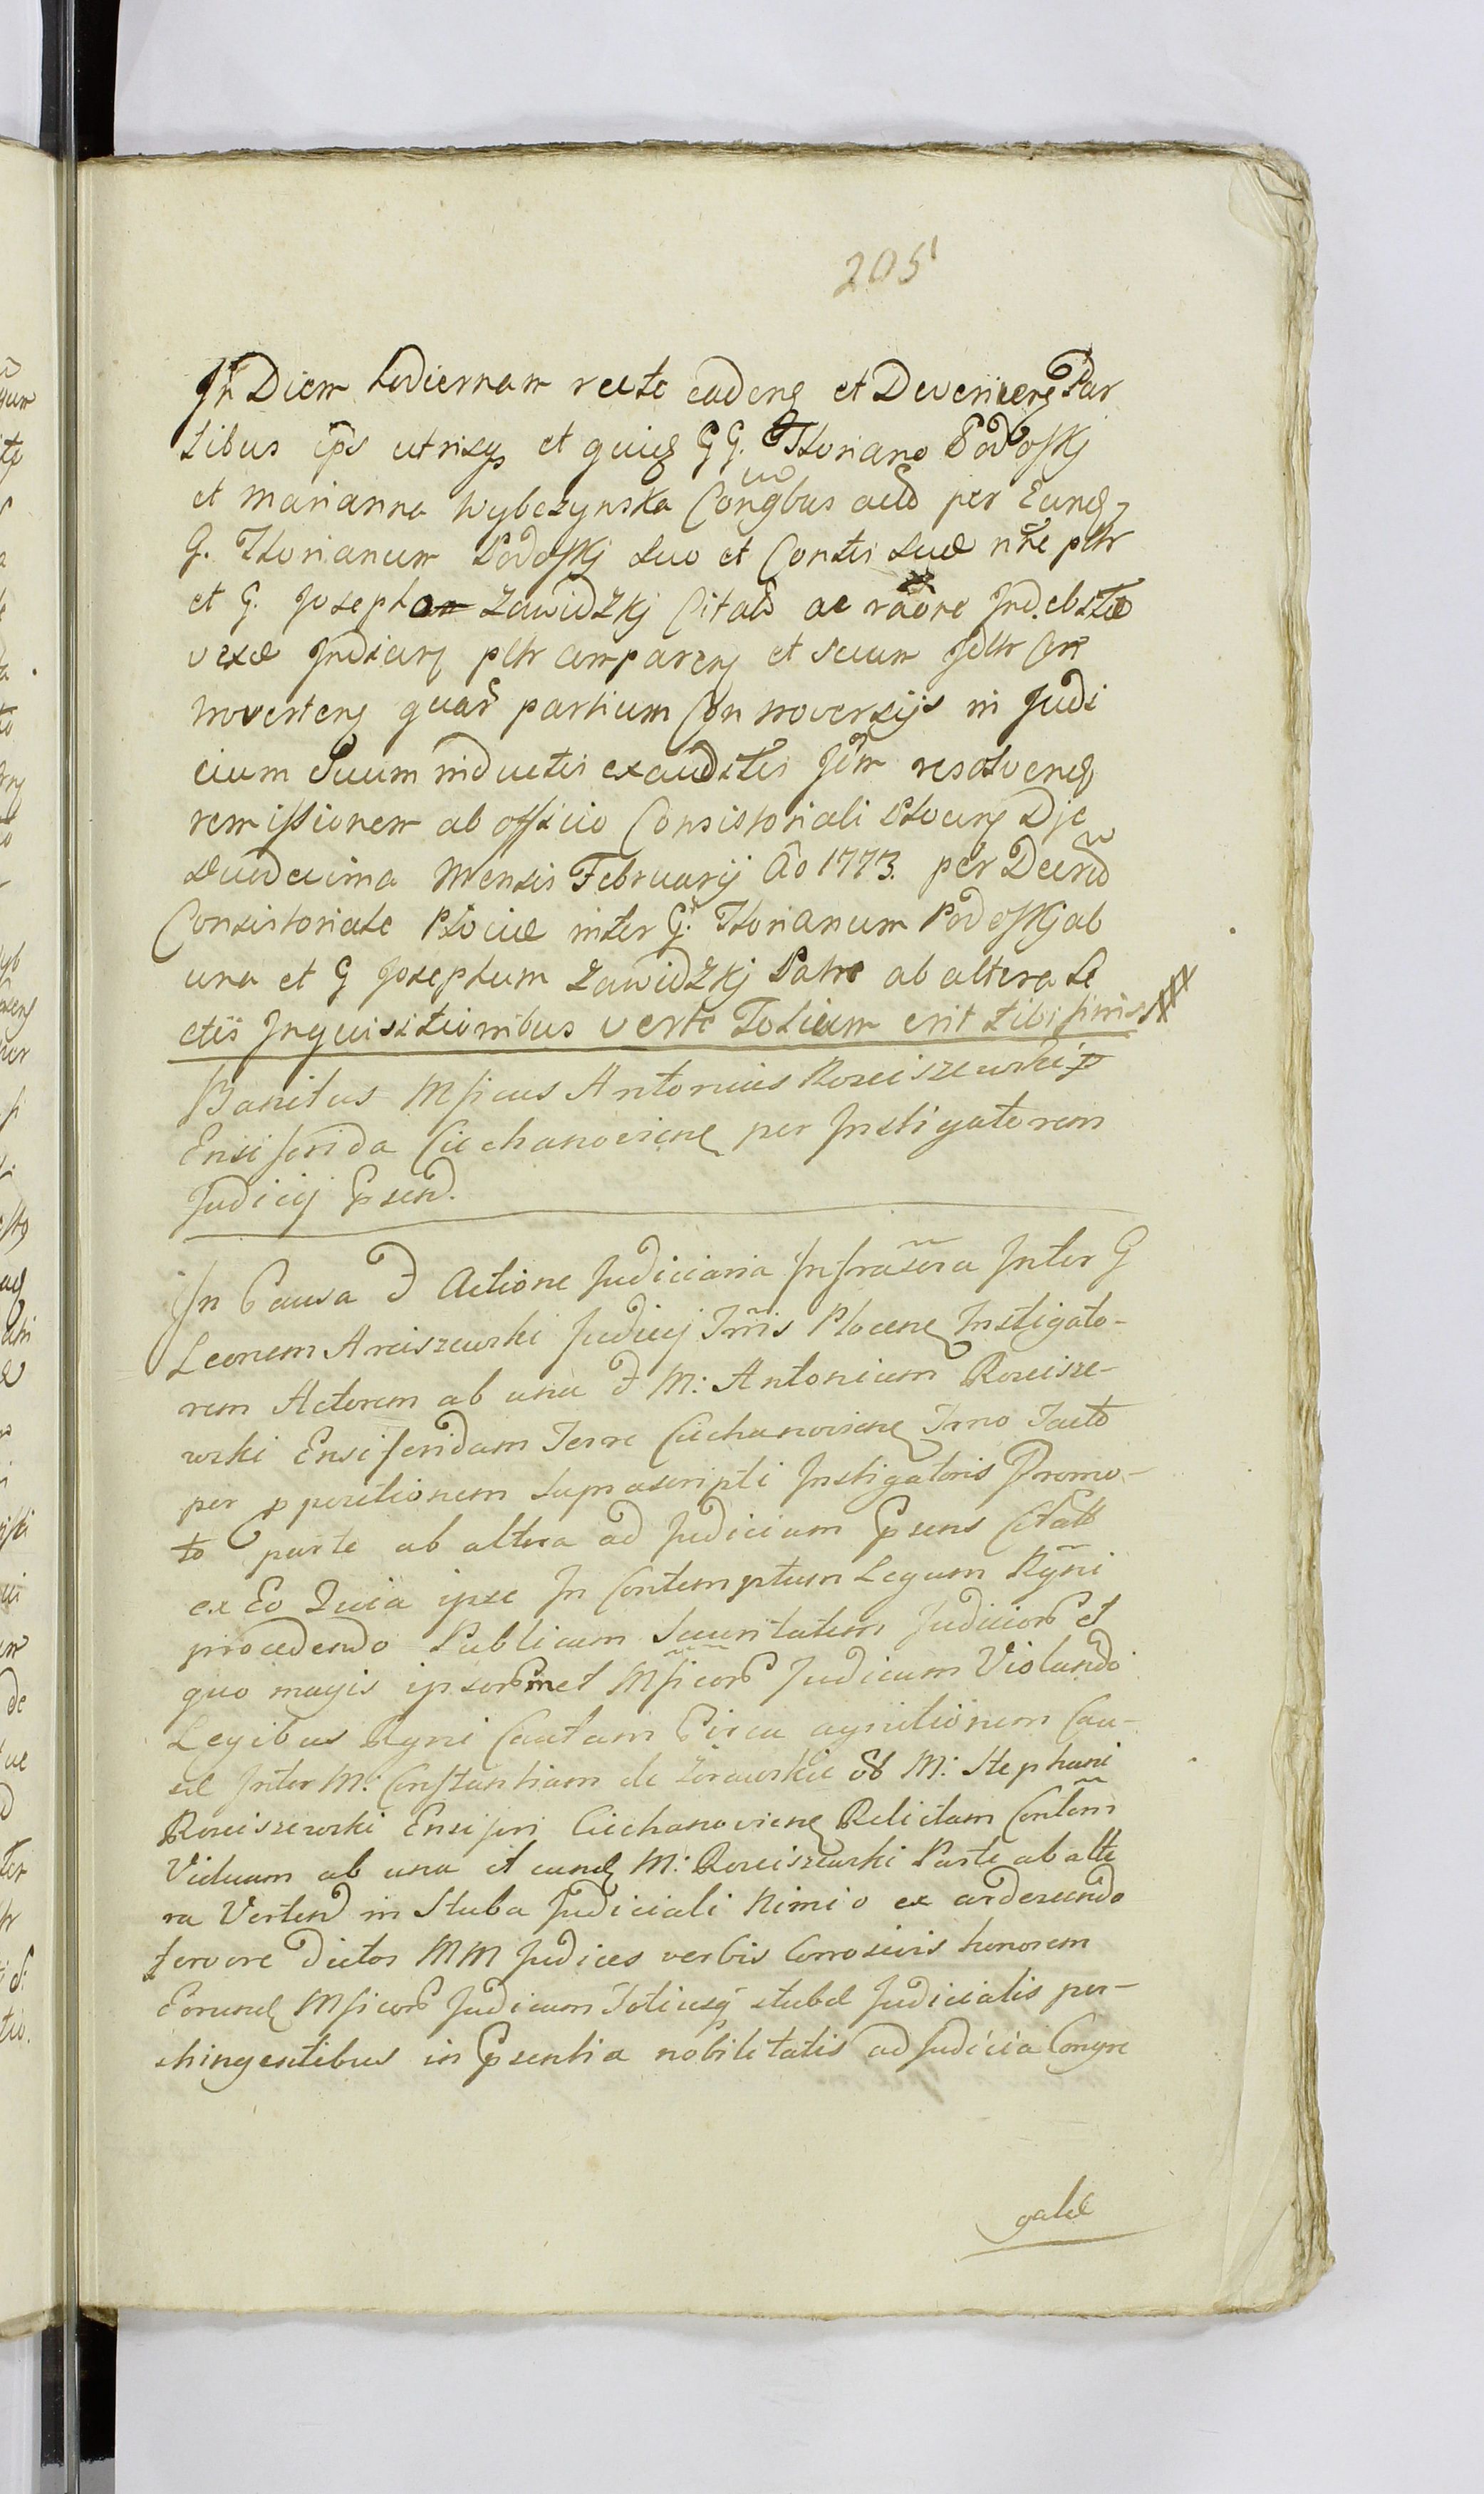 205
In Diem hodiernam recte caden et Devenien Par
tibus ips utrisq et quid GG. Floriano Podoskj
et Marianna Wybczynska Congbus aud per Eund
G. Florianum Podoskj suo et Contis suæ nre pltr
et G. Joseph Zawidzkj Citato ac raone Indebitæ
vexæ Judiciar pltr comparen et secum Jdltr Con
troverten quar partium Controversijs in Judi
cium Suum inductis exauditis Jdm resolvend
remissionem ab officio Consistoriali Plocen Die
duodecima Mensis Februarij Ao 1773. per Decrtd
Consistoriale Plociæ inter G. Florianum Podoskj ab
una et G Josephum Zawidzkj Patre ab altera La
ctis Inquisitionibus verte Folium erit tibi finis
Banitus Mficus Antonius Rosciszewski
Ensiferida Ciechanoviene per Instigatorem
Judicij Psend.
In Causa & Actione Judiciaria Infrascra Inter G
Leonem Arciszewski Judicij Trris Plocene Instigato-
rem Actorem ab una & M: Antonium Roscisze-
wski Ensiferidam Terre Ciechanoviene Trno Tacto
per appositionem suprascripti Instigatoris Promo-
to parte ab altera ad Judicium Psens Citatt
ex Eo Quia ipse In Contemptum Legum Rgni
procedendo Publicam Securitatem Judicior et
quo magis ipsormet Mficor Judicum Violando
Legibus Rgni Cautam Circa agnitionem Cau-
sæ Inter M: Constantiam de Zórawskie M: Stephani
Rosciszewski Ensiferi Ciechanoviene Relictam Contem
Viduam ab una et eund M: Rosciszewski Parte ab alte
ra Vertend in Stuba Judiciali Nimio ex ardescendo
fervore dictos MM Judices verbis Corrosivis honorem
Eorund Mficor Judicum Totiusq stubæ Judicialis per-
stringentibus in Psentia nobilitatis ad Judicia Congre
gatæ